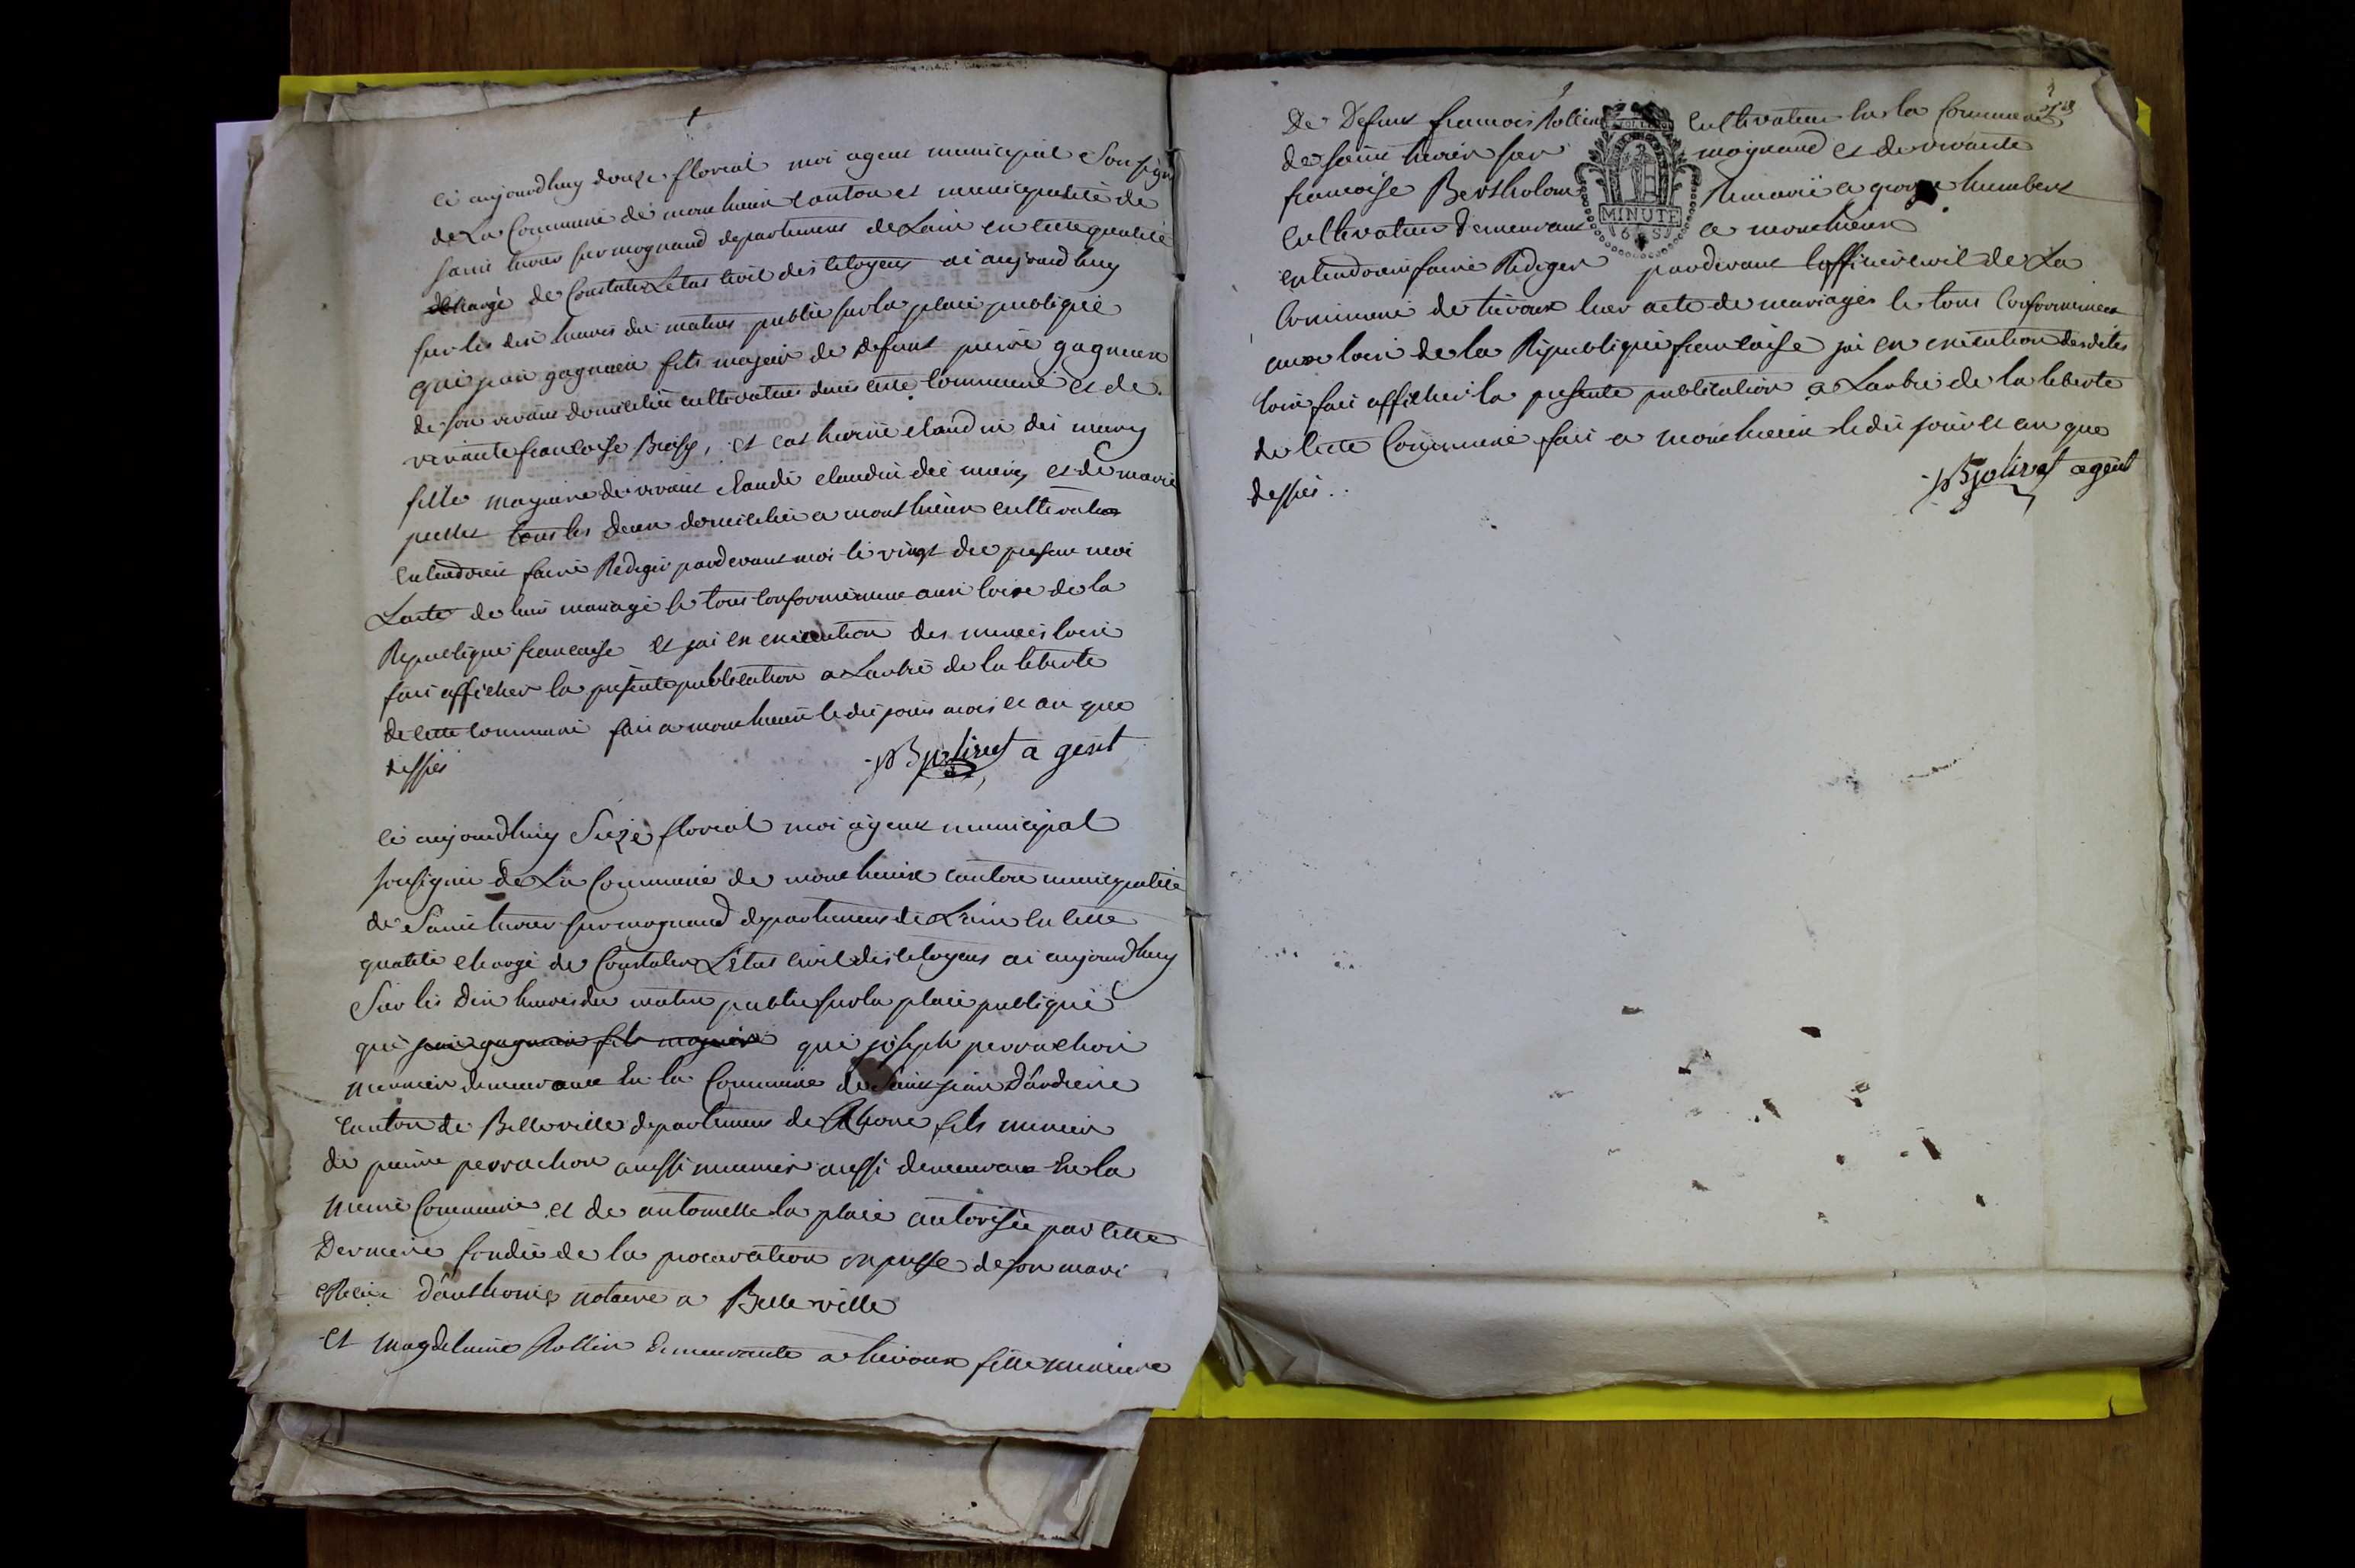 Ce aujourdhuy douze floreal moi agent municipal Sousigné
de La Commune de monthieux canton et municipalité de
saint trivier sur mognand departement de Lain en cette qualité
chargé de Constater Letat Civil des Citoyens ai aujourdhuy
sur les dix heures du matin publié sur la place publique
que jean gagneux fils majeur de defunt pierre gagneux
de son vivant domicilié cultivateur dans cette Commune et de
vivante francoise Brossy, et catherine claudin dit mercy
fille mageure de vivant claude claudin dit mercy et de marie
tous les deux domicilié a monthieux cultivateur
entendoient faire Rediger pardevant moi le vingt du present moi
Lacte de leur mariage le tout conformement aux loix de la
Republique francaise et jai en execution des memes loix
fait afficher la presente publication a Larbre de la liberte
de cette commune fait a monthieux ledit jour mois et an que
dessus
agent
Ce aujourdhuy Seize floreal moi agent municipal
sousigné de La Commune de monthieux canton municipalité
de Saint trivier sur mognand departement de Lain en cette
qualité chargé de Constater Letat Civil des Citoyens ai aujourdhuy
Sur les dix heures du matin publié sur la place publique
que jean gagneux fils mageur que joseph perrachon
meunier demeurant En la Commune de Saint jean Dardiere
Canton de Belleville departement de Rhone fils mineur
de pierre perrachon aussi meunier aussi demeurant En la
meme Commune et de antoinette la place autorisée par cette
Derniere fondée de la procuration de son mari
Dauthonis notaire a Belleville
Et magdelaine Rollin demeurante a fille mineure
De Defunt francois Rollin Cultivateur En la Commune
de saint trivier sur mognand et de vivante
francoise Bertholon Remarié a george humbert
Cultivateur demeurant a monthieux
entendoient faire Rediger pardevant lofficier civil de La
Commune de leur acte de mariage le tout Conformement
aux loix de la Republique francaise jai en execution desdites
loix fait afficher la presente publication a Larbre de la liberte
de cette Commune fait a monthieux ledit jour et an que
dessus..
agent
MINUTE